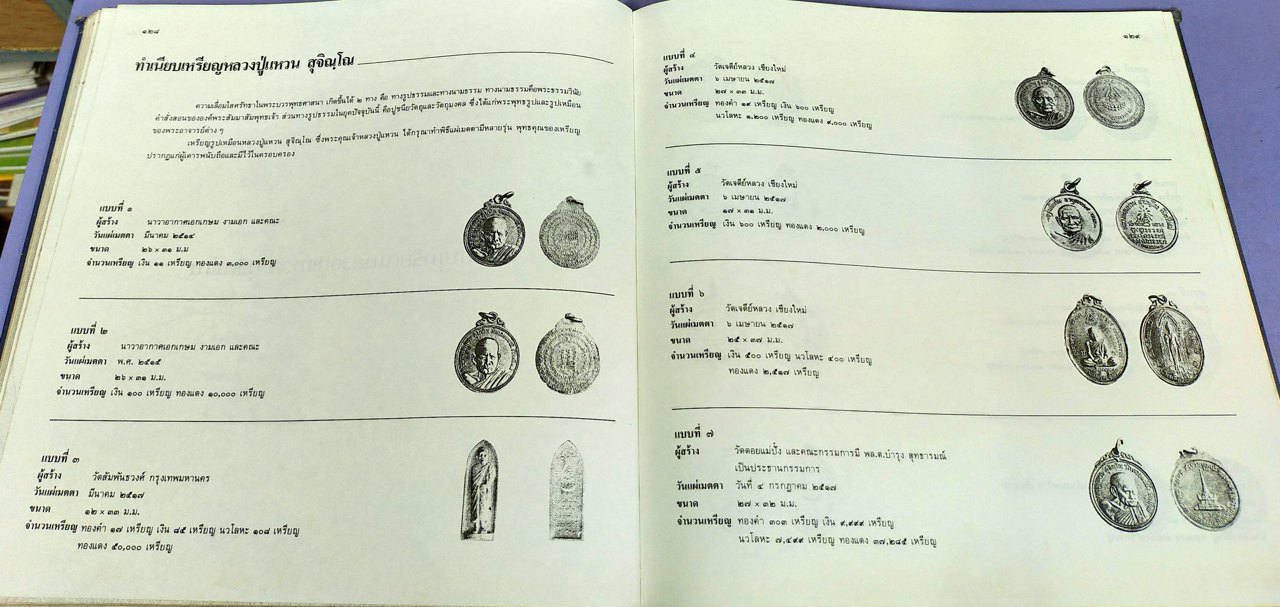 ๑๒๘
ทำเนียบเหรียญหลวงปู่แหวน สุจิณฺโณ
ความเลื่อมใสศรัทธาในพระบวรพุทธศาสนา เกิดขึ้นได้ ๒ ทาง คือ ทางรูปธรรมและทางนามธรรม ทางนามธรรมคือพระธรรมวินัย
คำสั่งสอนขององค์พระสัมมาสัมพุทธเจ้า ส่วนทางรูปธรรมในยุคปัจจุบันนี้ คือปูชนียวัตถุและวัตถุมงคล ซึ่งได้แก่พระพุทธรูปและรูปเหมือน
ของพระอาจารย์ต่าง ๆ
เหรียญรูปเหมือนหลวงปู่แหวน สุจิณฺโณ ซึ่งพระคุณเจ้าหลวงปู่แหวน ได้กรุณาทำพิธีแผ่เมตตามีหลายรุ่น พุทธคุณของเหรียญ
ปรากฏแก่ผู้เคารพนับถือและมีไว้ในครอบครอง
แบบที่ ๑
ผู้สร้าง นาวาอากาศเอกเกษม งามเอก และคณะ
วันแผ่เมตตา มีนาคม ๒๕๑๔
ขนาด ๒๖ × ๓๑ ม.ม
จำนวนเหรียญ เงิน ๑๑ เหรียญ ทองแดง ๓,๐๐๐ เหรียญ
แบบที่ ๒
ผู้สร้าง นาวาอากาศเอกเกษม งามเอก และคณะ
วันแผ่เมตตา พ.ศ. ๒๕๑๕
ขนาด ๒๖ × ๓๑ ม.ม.
จำนวนเหรียญ เงิน ๑๐๐ เหรียญ ทองแดง ๑๐,๐๐๐ เหรียญ
แบบที่ ๓
ผู้สร้าง วัดสัมพันธวงศ์ กรุงเทพมหานคร
วันแผ่เมตตา มีนาคม ๒๕๑๗
ขนาด ๑๒ × ๓๓ ม.ม.
จำนวนเหรียญ ทองคำ ๑๗ เหรียญ เงิน ๘๕ เหรียญ นวโลหะ ๑๐๘ เหรียญ
ทองแดง ๕๐,๐๐๐ เหรียญ
๑๒๙
แบบที่ ๔
ผู้สร้าง วัดเจดีย์หลวง เชียงใหม่
วันแผ่เมตตา ๖ เมษายน ๒๕๑๗
ขนาด ๒๗ × ๓๓ ม.ม.
จำนวนเหรียญ ทองคำ ๑๙ เหรียญ เงิน ๖๐๐ เหรียญ
นวโลหะ ๑,๒๐๐ เหรียญ ทองแดง ๙,๐๐๐ เหรียญ
แบบที่ ๕
ผู้สร้าง วัดเจดีย์หลวง เชียงใหม่
วันแผ่เมตตา ๖ เมษายน ๒๕๑๗
ขนาด ๑๗ × ๓๑ ม.ม.
จำนวนเหรียญ เงิน ๖๐๐ เหรียญ ทองแดง ๒,๐๐๐ เหรียญ
แบบที่ ๖
ผู้สร้าง วัดเจดีย์หลวง เชียงใหม่
วันแผ่เมตตา ๖ เมษายน ๒๕๑๗
ขนาด ๒๕ × ๓๗ ม.ม.
จำนวนเหรียญ เงิน ๕๐๐ เหรียญ นวโลหะ ๔๐๐ เหรียญ
ทองแดง ๒,๕๑๗ เหรียญ
แบบที่ ๗
ผู้สร้าง วัดดอยแม่ปั๋ง และคณะกรรมการมี พล.ต.บำรุง สุทธารมณ์
เป็นประธานกรรมการ
วันแผ่เมตตา วันที่ ๔ กรกฎาคม ๒๕๑๗
ขนาด ๒๗ × ๓๒ ม.ม.
จำนวนเหรียญ ทองคำ ๓๐๓ เหรียญ เงิน ๙,๙๙๙ เหรียญ
นวโลหะ ๗,๔๙๙ เหรียญ ทองแดง ๓๗,๒๘๕ เหรียญ